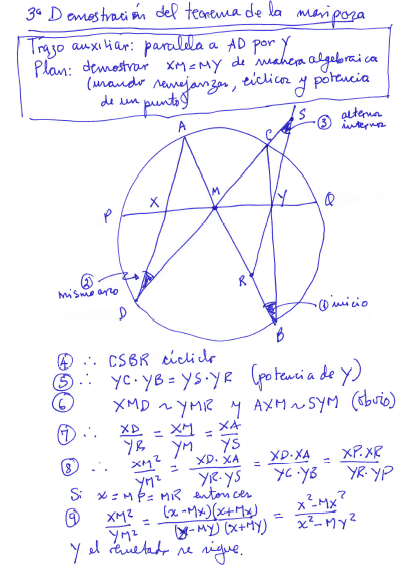 3ª Demostración del teorema de la mariposa
Trazo auxiliar: paralela a AD por Y
Plan: demostrar XM=MY de manera algebraica
(usando semejanzas, cíclicos y potencia
de un punto)
S
③ alternos
internos
A
C
P
X
M
Y
Q
②
mismo arco
R
D
① inicio
B
④ ∴ CSBR cíclico
⑤ ∴ YC·YB = YS·YR (potencia de Y)
⑥ XMD ~ YMR y AXM ~ SYM (obvio)
⑦ ∴ XD/YR = XM/YM = XA/YS
⑧ ∴ XM²/YM² = XD·XA/YR·YS = XD·XA/YC·YB = XP·XR/YR·YP
Si x = MP = MR entonces
⑨ XM²/YM² = (x-Mx)(x+Mx)/(x-MY)(x+MY) = x²-Mx²/x²-MY²
Y el resultado se sigue.